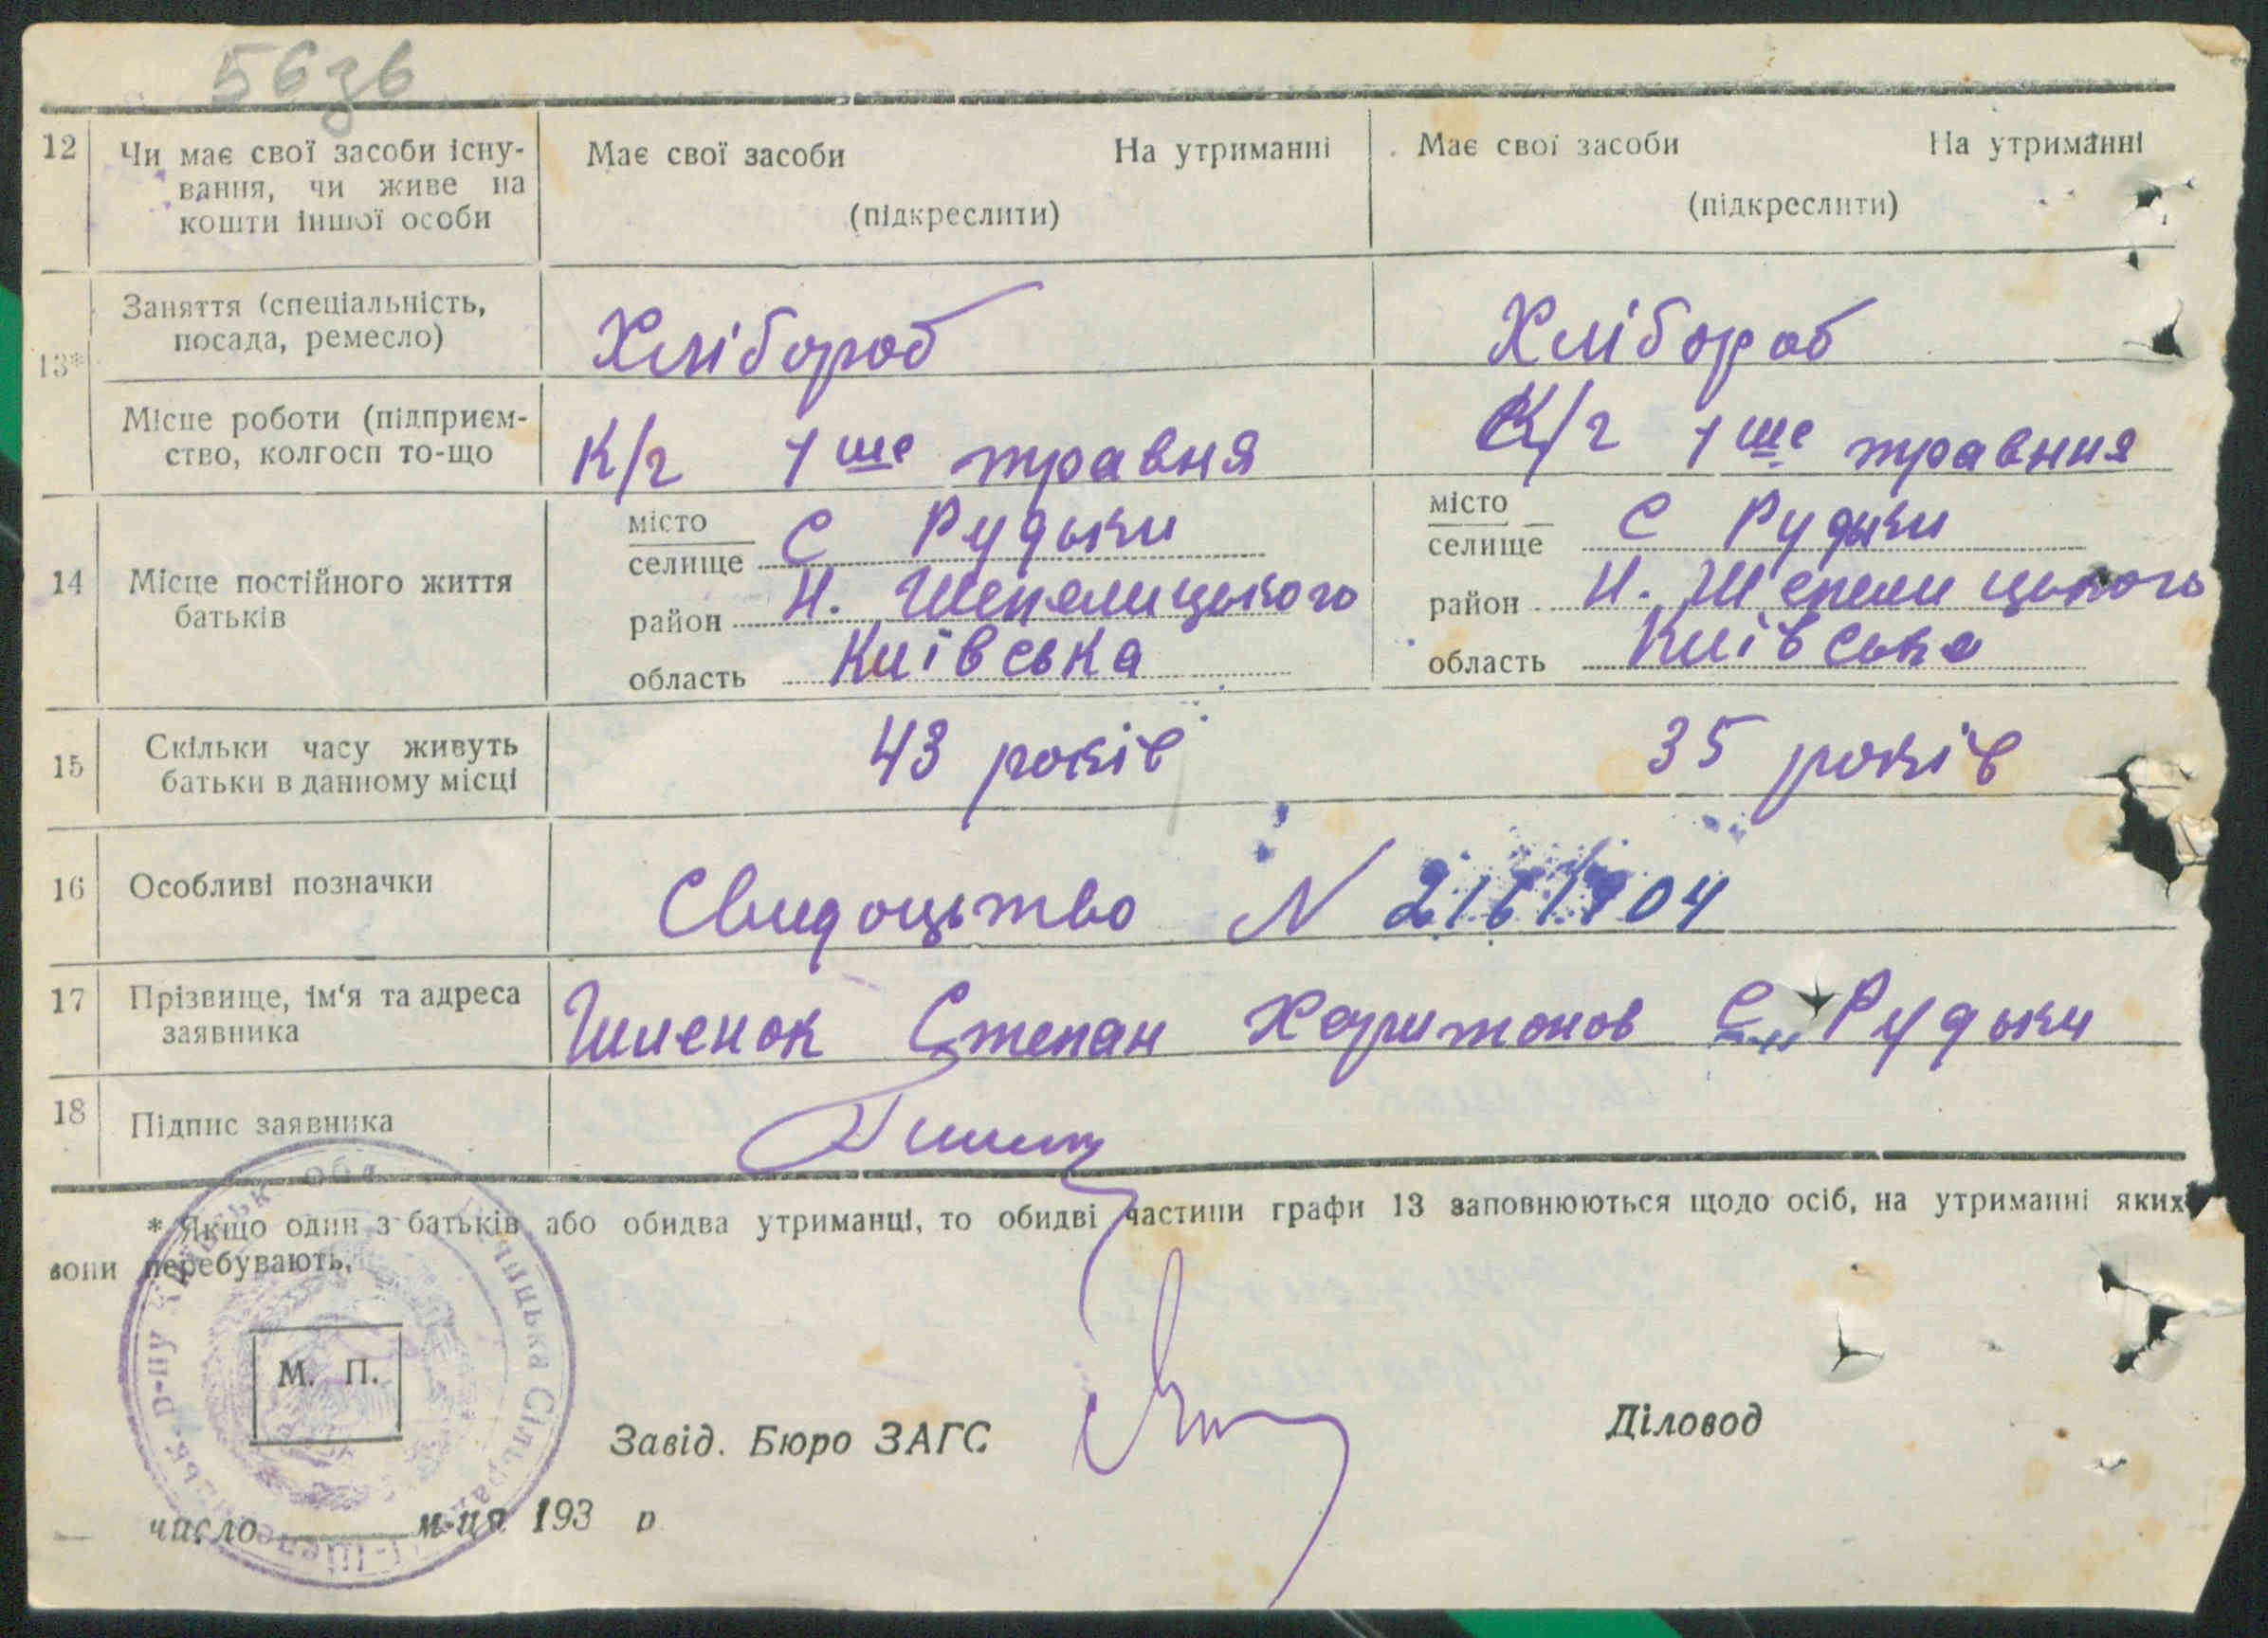 56зв
12 Чи має свої засоби існу- Має свої засоби На утриманні Має свої засоби На утриманні
вання, чи живе на
кошти іншої особи (підкреслити) (підкреслити)
13* Заняття (спеціальність,
посада, ремесло) Хлібороб Хлібороб
Місце роботи (підприєм-
ство, колгосп то-що К/г 1 ше травня К/г 1 ше травння
14 Місце постійного життя
батьків
місто
селище С Рудьки
район Н. Шепелицького
область Київська
місто
селище С Рудьки
район Н. Шепелицького
область Київська
15 Скільки часу живуть
батьки в данному місці 43 років 35 років
16 Особливі позначки Свидоцьтво N 04
17 Прізвище, ім'я та адреса
заявника Шленок Степан Харитонов С Рудьки
18 Підпис заявника
* Якщо один з батьків або обидва утриманці, то обидві частини графи 13 заповнюються щодо осіб, на утриманні яких
вони перебувають.
М. П.
Завід. Бюро ЗАГС Діловод
число м-ця 193 р
Сільрада
р-ну
обл.